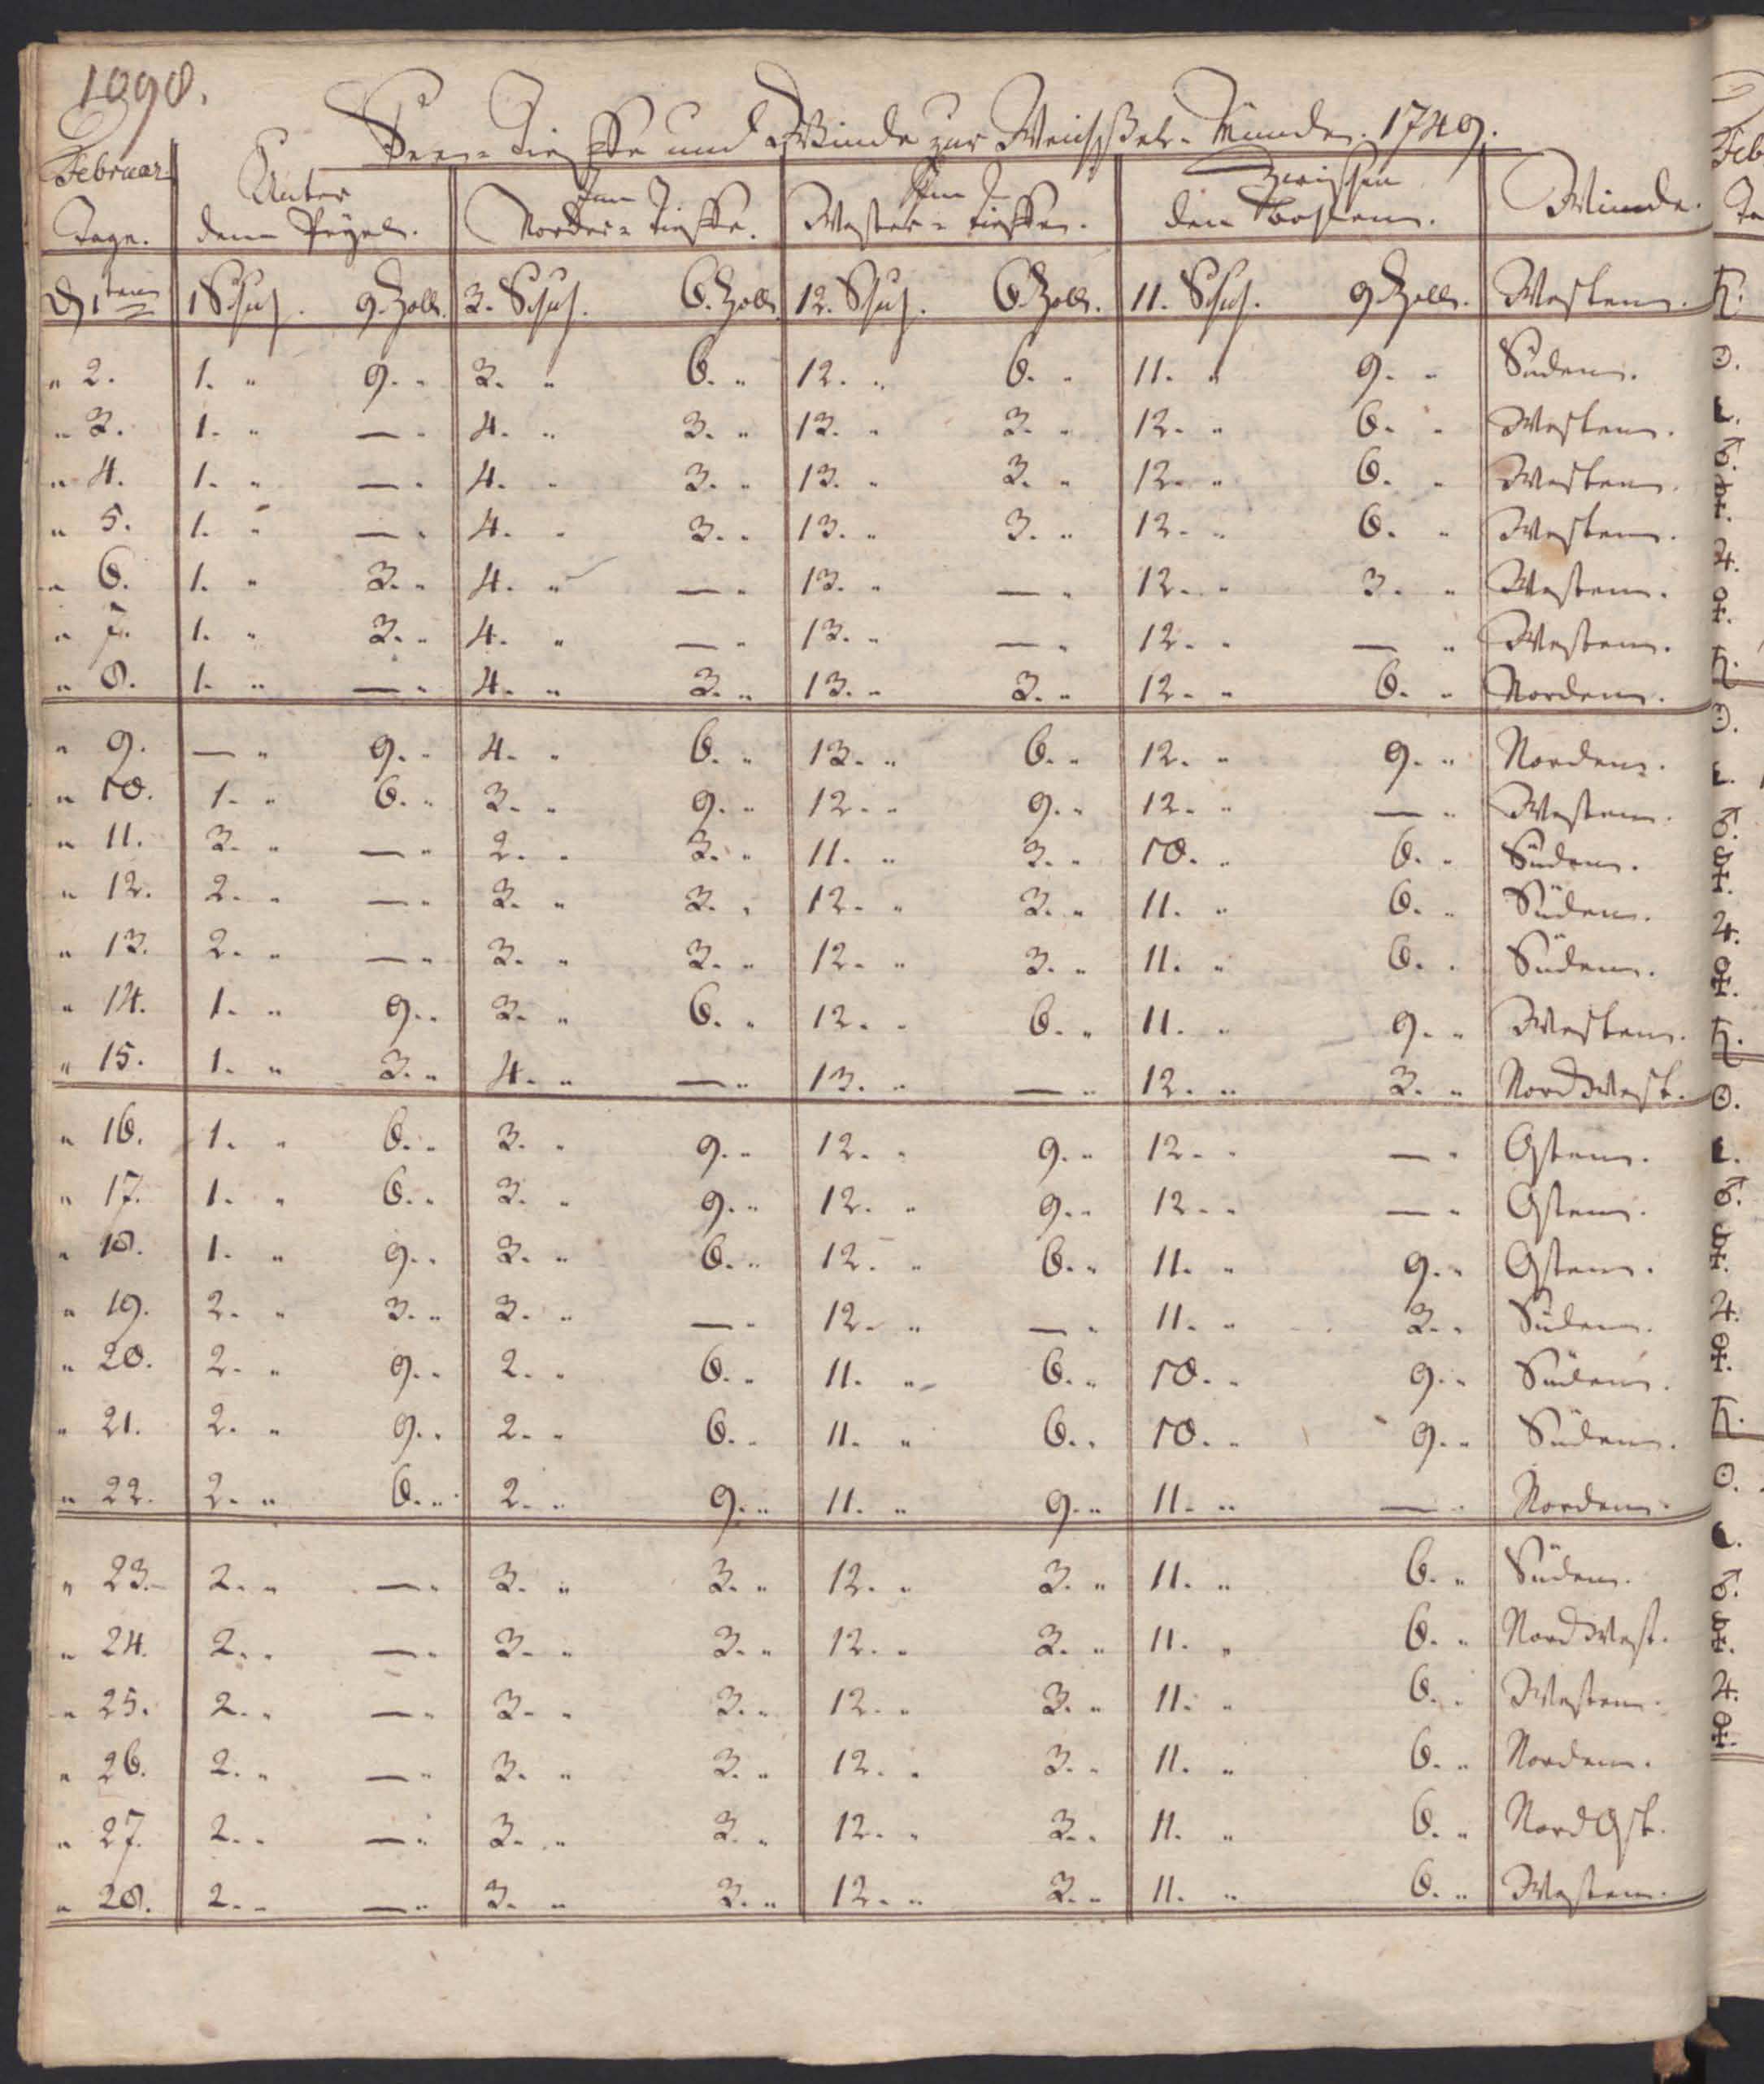 1098.
See-Tieffe und Winde zur Weichßel-Münde. 1749.
Februar. Tage. Unter dem Pegel. Im Norder-Tieffe. Im Wester-Tieffen. Zwischen den Bohlen. Winde.
D 1ten 1 Schuh. 9. Zoll. 3. Schuh. 6. Zoll. 12. Schuh. 6. Zoll. 11. Schuh. 9 Zoll. Westen.
" 2. 1. " 9. " 3. " 6. " 12. " 6. " 11. " 9. " Süden.
" 3. 1. " — " 4. " 3. " 13. " 3. " 12. " 6. " Westen.
" 4. 1. " — " 4. " 3. " 13. " 3. " 12. " 6. " Westen.
" 5. 1. " — " 4. " 3. " 13. " 3. " 12. " 6. " Westen.
" 6. 1. " 3. " 4. " — " 13. " — " 12. " 3. " Westen.
" 7. 1. " 3. " 4. " — " 13. " — " 12. " — " Westen.
" 8. 1. " — " 4. " 3. " 13. " 3. " 12. " 6. " Norden.
" 9. — " 9. " 4. " 6. " 13. " 6. " 12. " 9. " Norden.
" 10. 1. " 6. " 3. " 9. " 12. " 9. " 12. " — " Westen.
" 11. 3. " — " 2. " 3. " 11. " 3. " 10. " 6. " Süden.
" 12. 2. " — " 3. " 3. " 12. " 3. " 11. " 6. " Süden.
" 13. 2. " — " 3. " 3. " 12. " 3. " 11. " 6. " Süden.
" 14. 1. " 9. " 3. " 6. " 12. " 6. " 11. " 9. " Westen.
" 15. 1. " 3. " 4. " — " 13. " — " 12. " 3. " NordWest.
" 16. 1. " 6. " 3. " 9. " 12. " 9. " 12. " — " Osten.
" 17. 1. " 6. " 3. " 9. " 12. " 9. " 12. " — " Osten.
" 18. 1. " 9. " 3. " 6. " 12. " 6. " 11. " 9. " Osten.
" 19. 2. " 3. " 3. " — " 12. " — " 11. " 3. " Süden.
" 20. 2. " 9. " 2. " 6. " 11. " 6. " 10. " 9. " Süden.
" 21. 2. " 9. " 2. " 6. " 11. " 6. " 10. " 9. " Süden.
" 22. 2. " 6. " 2. " 9. " 11. " 9. " 11. " — " Norden.
" 23. 2. " — " 3. " 3. " 12. " 3. " 11. " 6. " Süden.
" 24. 2. " — " 3. " 3. " 12. " 3. " 11. " 6. " NordWest.
" 25. 2. " — " 3. " 3. " 12. " 3. " 11. " 6. " Westen.
" 26. 2. " — " 3. " 3. " 12. " 3. " 11. " 6. " Norden.
" 27. 2. " — " 3. " 3. " 12. " 3. " 11. " 6. " NordOst.
" 28. 2. " — " 3. " 3. " 12. " 3. " 11. " 6. " Westen.
Feb
Ta
♄.
☉.
☾.
♂.
☿.
♃.
♀.
♄.
☉.
☾.
♂.
☿.
♃.
♀.
♄.
☉.
☾.
♂.
☿.
♃.
♀.
♄.
☉.
☾.
♂.
☿.
♃.
♀.